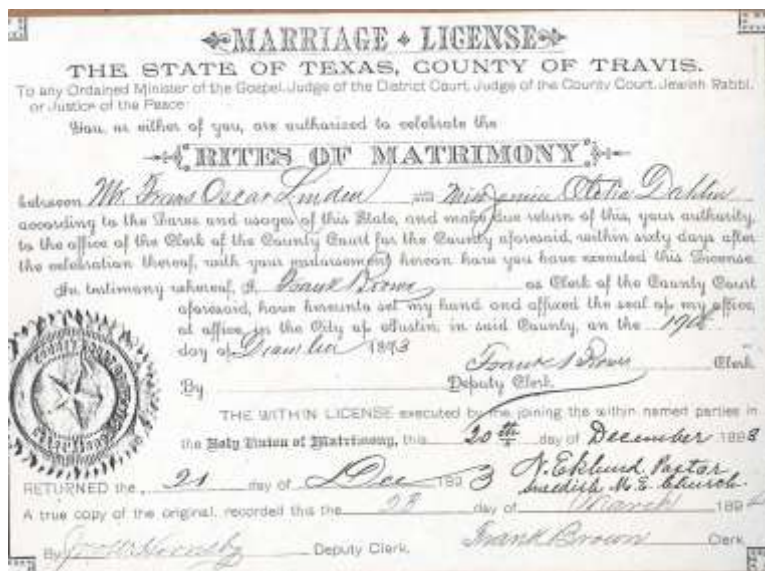 MARRIAGE LICENSE
THE STATE OF TEXAS, COUNTY OF TRAVIS.
To any Ordained Minister of the Gospel, Judge of the District Court, Judge of the County Court, Jewish Rabbi,
or Justice of the Peace
You, or either of you, are authorized to celebrate the
RITES OF MATRIMONY
between Mr. Frans Oscar Linden and Miss Otelia Dahlin
according to the Laws and usages of this State, and make due return of this, your authority,
to the office of the Clerk of the County Court for the County aforesaid, within sixty days after
the celebration thereof, with your endorsement hereon how you have executed this License.
In testimony whereof, I Frank Brown as Clerk of the County Court
aforesaid, have hereunto set my hand and affixed the seal of my office,
at office, in the City of Austin, in said County, on the
day of December 1893
Frank Brown Clerk
By Deputy Clerk.
THE WITHIN LICENSE executed by me joining the within named parties in
the Holy Union of Matrimony, this 20th day of December 1893
N. Eklund, Pastor
Swedish M. E. Church.
RETURNED the 21 day of Dec 1893
A true copy of the original, recorded this the 28 day of March 1894
By Hornsby Deputy Clerk. Frank Brown Clerk